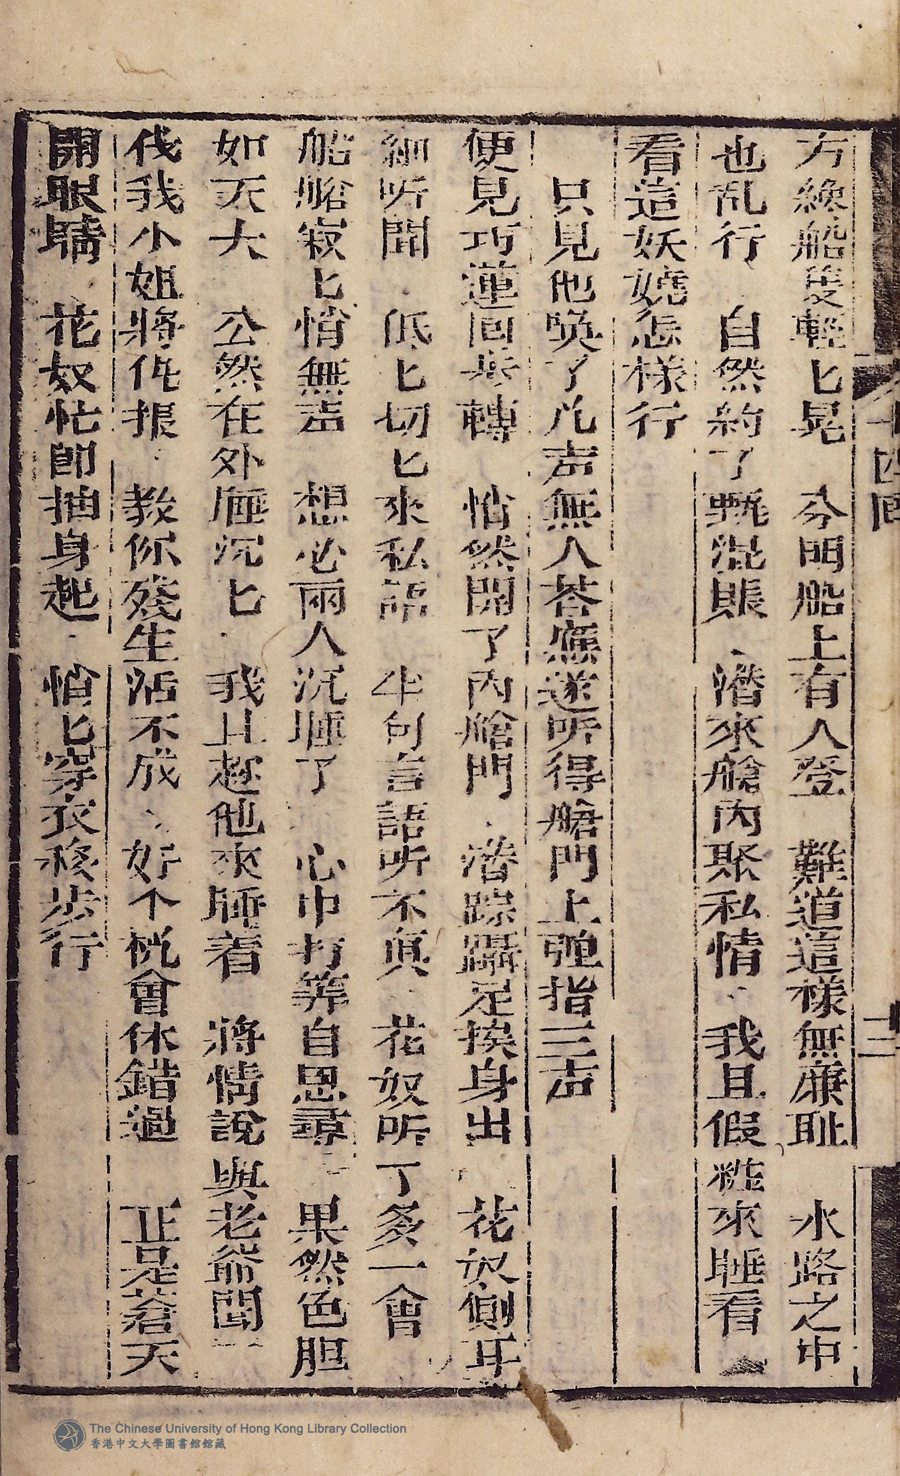 方纔船隻輕匕晃 分明船上有人登 難道這樣無廉耻 水路之中
也乱行 自然約了甄混賬 潜來艙内聚私情 我且假粧來睡看
看這妖嬈怎樣行
只見他喚了几声無人荅應遂听得艙門上弹指三声
便見巧蓮回 轉 悄然開了内艙門 潜踪躡足挨身出 花奴側耳
細听聞 低匕切匕來私語 半句言語听不真 花奴听了多一會
船艙寂匕悄無声 想必兩人沉睡了 心中打筭自思尋 果然色胆
如天大 公然在外睡沉匕 我且趂他來睡着 將情說與老爺聞
伐我小姐將仇报 教你殘生活不成 好个机會休錯過 正是蒼天
開眼睛 花奴忙即抽身起 悄匕穿衣移步行
十四回
十三
The Chinese University of Hong Kong Library Collection
香港中文大學圖書館館藏